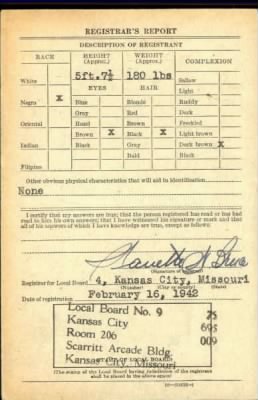 REGISTRAR'S REPORT
DESCRIPTION OF REGISTRANT
RACE HEIGHT (Approx.) WEIGHT (Approx.) COMPLEXION
White 5ft.7½ 180 lbs Sallow
EYES HAIR Light
Negro X Blue Blonde Ruddy
Gray Red Dark
Oriental Hazel Brown Freckled
Brown X Black X Light brown
Indian Black Gray Dark brown X
Bald Black
Filipino
Other obvious physical characteristics that will aid in identification
None
I certify that my answers are true; that the person registered has read or has had
read to him his own answers; that I have witnessed his signature or mark and that
all of his answers of which I have knowledge are true, except as follows:
(Signature of registrar)
Registrar for Local Board 4, Kansas City, Missouri
(Number) (City or county) (State)
Date of registration February 16, 1942
Local Board No. 9 75
Kansas City 695
Room 206 009
Scarritt Arcade Bldg.
Kansas City, Missouri
(STAMP OF LOCAL BOARD)
(The stamp of the Local Board having jurisdiction of the registrant
shall be placed in the above space)